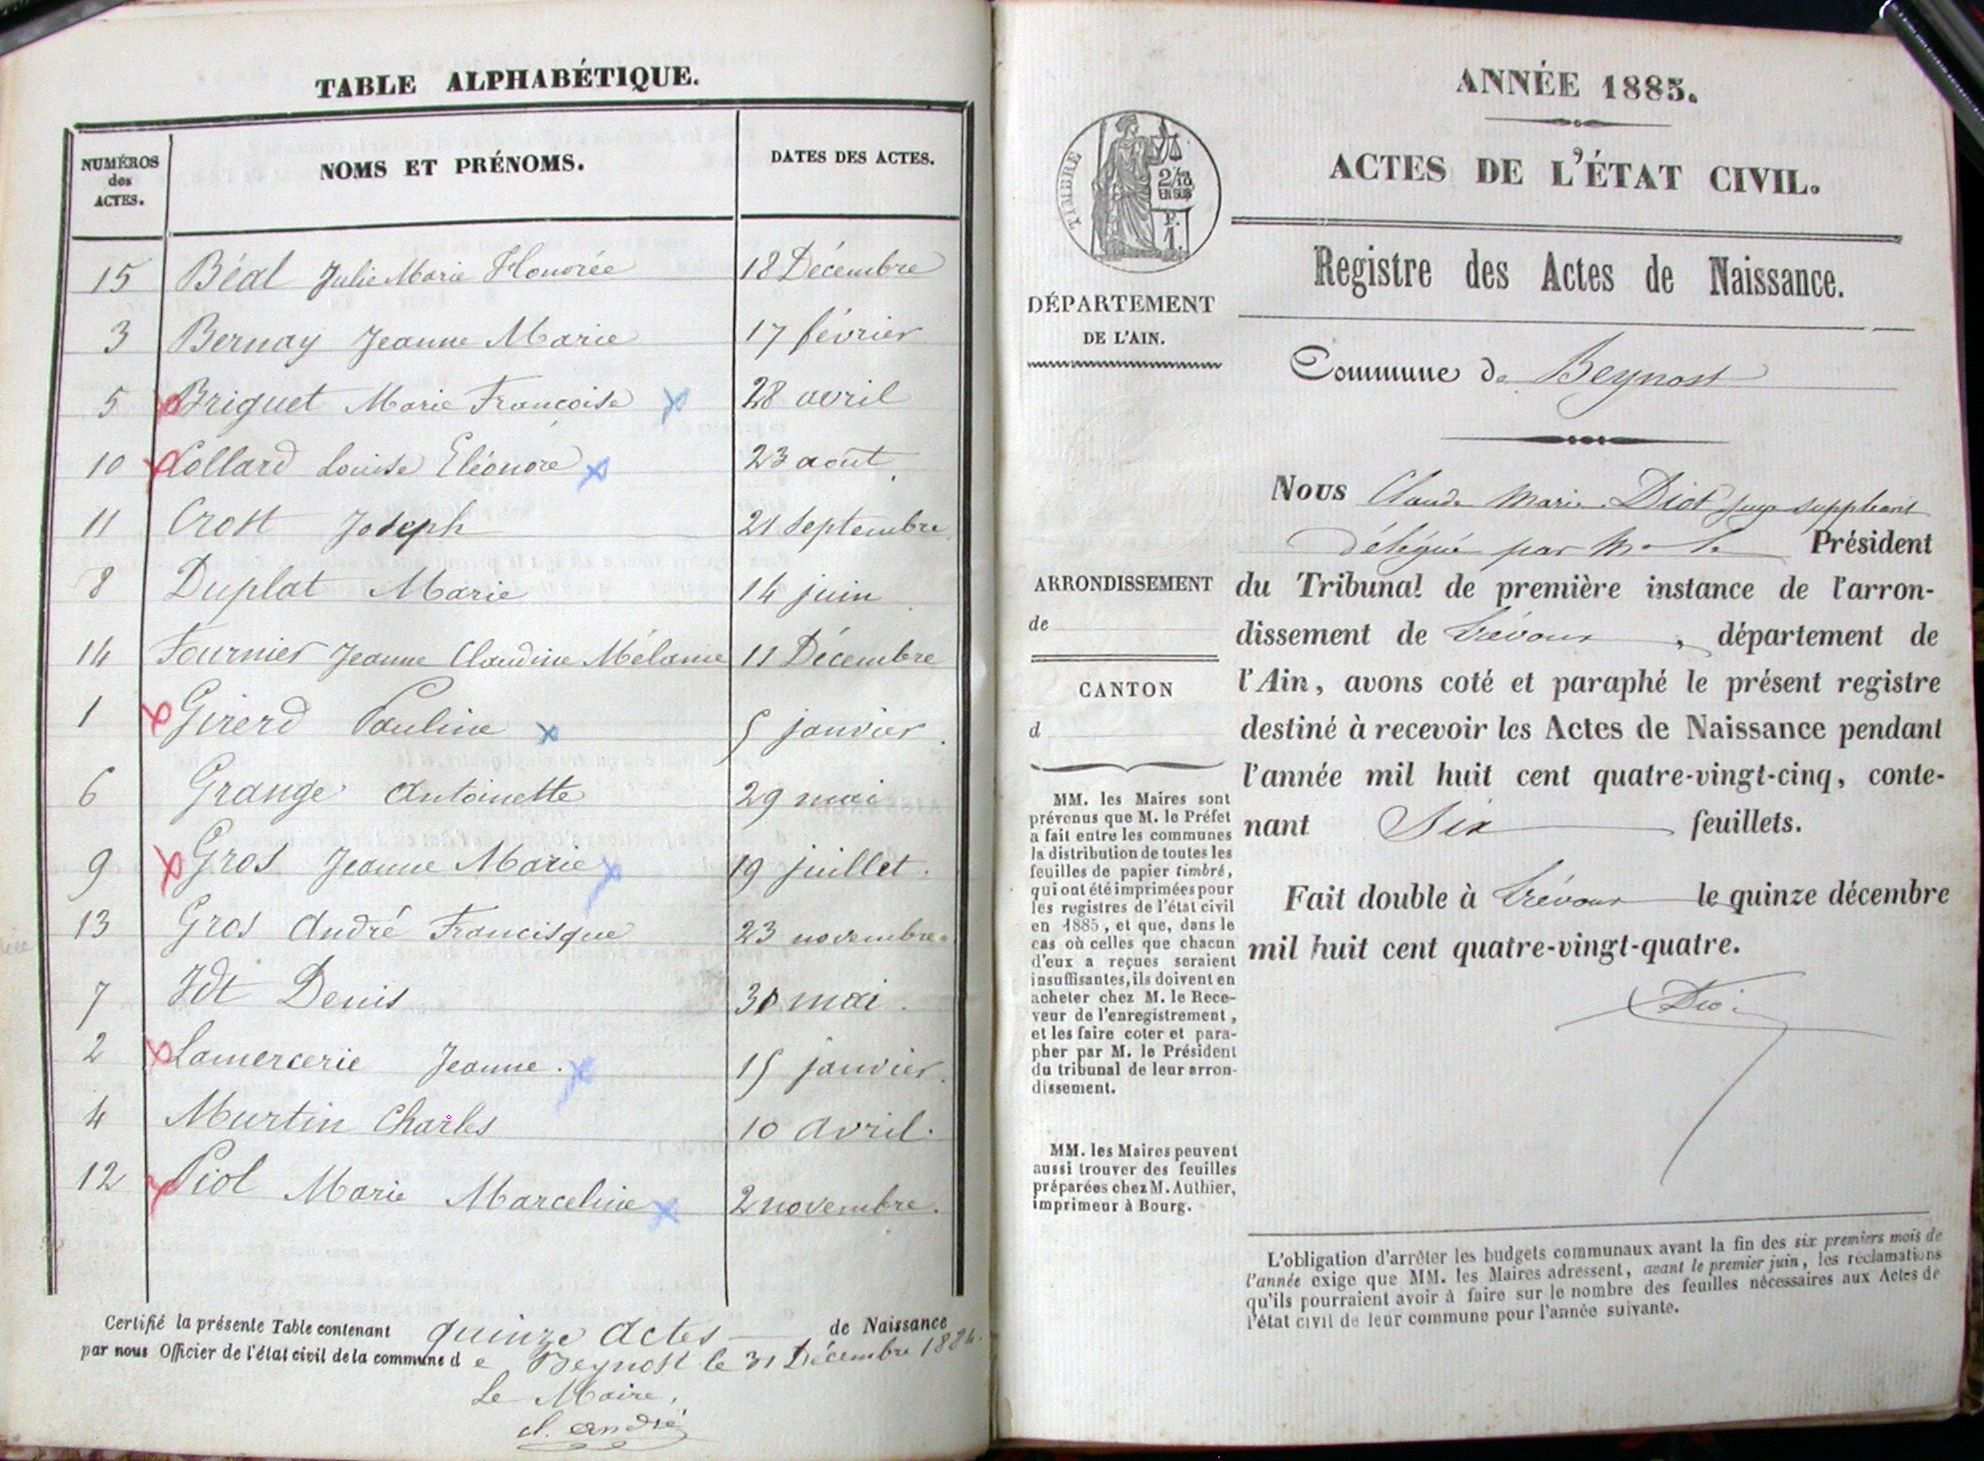 TABLE ALPHABÉTIQUE.
NUMÉROS des ACTES. NOMS ET PRÉNOMS. DATES DES ACTES.
15 Béal Julie Marie Honorée 18 Décembre
3 Bernay Jeanne Marie 17 février
5 Briguet Marie Françoise 28 avril
10 Collard Louise Eléonore 23 août
11 Crost Joseph 21 Septembre
8 Duplat Marie 14 juin
14 Fournier Jeanne Claudine Mélanie 11 Décembre
1 Girerd Pauline 5 janvier
6 Grange Antoinette 29 mai
9 Gros Jeanne Marie 19 juillet.
13 Gros André Francisque 23 novembre.
7 Idt Denis 30 mai.
2 Lamercerie Jeanne. 15 janvier.
4 Murtin Charles 10 avril.
12 Piol Marie Marceline 2 novembre.
Certifié la présente Table contenant quinze actes de Naissance
par nous Officier de l'état civil de la commune de Beynost le 31 Décembre 1884.
Le Maire,
cl. andré
ANNÉE 1885.
ACTES DE L'ÉTAT CIVIL.
TIMBRE
2/10
EN SUS
Registre des Actes de Naissance.
DÉPARTEMENT
DE L'AIN.
Commune de Beynost
Nous Claude Marie Diot juge suppléant
délégué par M. le Président
du Tribunal de première instance de l'arron-
dissement de Trévoux, département de
l'Ain, avons coté et paraphé le présent registre
destiné à recevoir les Actes de Naissance pendant
l'année mil huit cent quatre-vingt-cinq, conte-
nant Six feuillets.
Fait double à Trévoux le quinze décembre
mil huit cent quatre-vingt-quatre.
Diot
ARRONDISSEMENT
de
CANTON
d
MM. les Maires sont
prévenus que M. le Préfet
a fait entre les communes
la distribution de toutes les
feuilles de papier timbré,
qui ont été imprimées pour
les registres de l'état civil
en 1885, et que, dans le
cas où celles que chacun
d'eux a reçues seraient
insuffisantes, ils doivent en
acheter chez M. le Rece-
veur de l'enregistrement,
et les faire coter et para-
pher par M. le Président
du tribunal de leur arron-
dissement.
MM. les Maires peuvent
aussi trouver des feuilles
préparées chez M. Authier,
imprimeur à Bourg.
L'obligation d'arrêter les budgets communaux avant la fin des six premiers mois de
l'année exige que MM. les Maires adressent, avant le premier juin, les réclamations
qu'ils pourraient avoir à faire sur le nombre des feuilles nécessaires aux Actes de
l'état civil de leur commune pour l'année suivante.